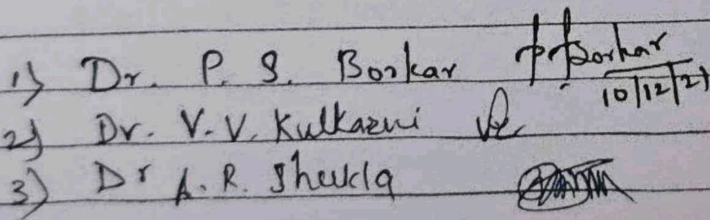 1) Dr. P. S. Borkar PBorkar
10/12/21
2) Dr. V. V. Kulkarni
3) Dr A. R. Shukla